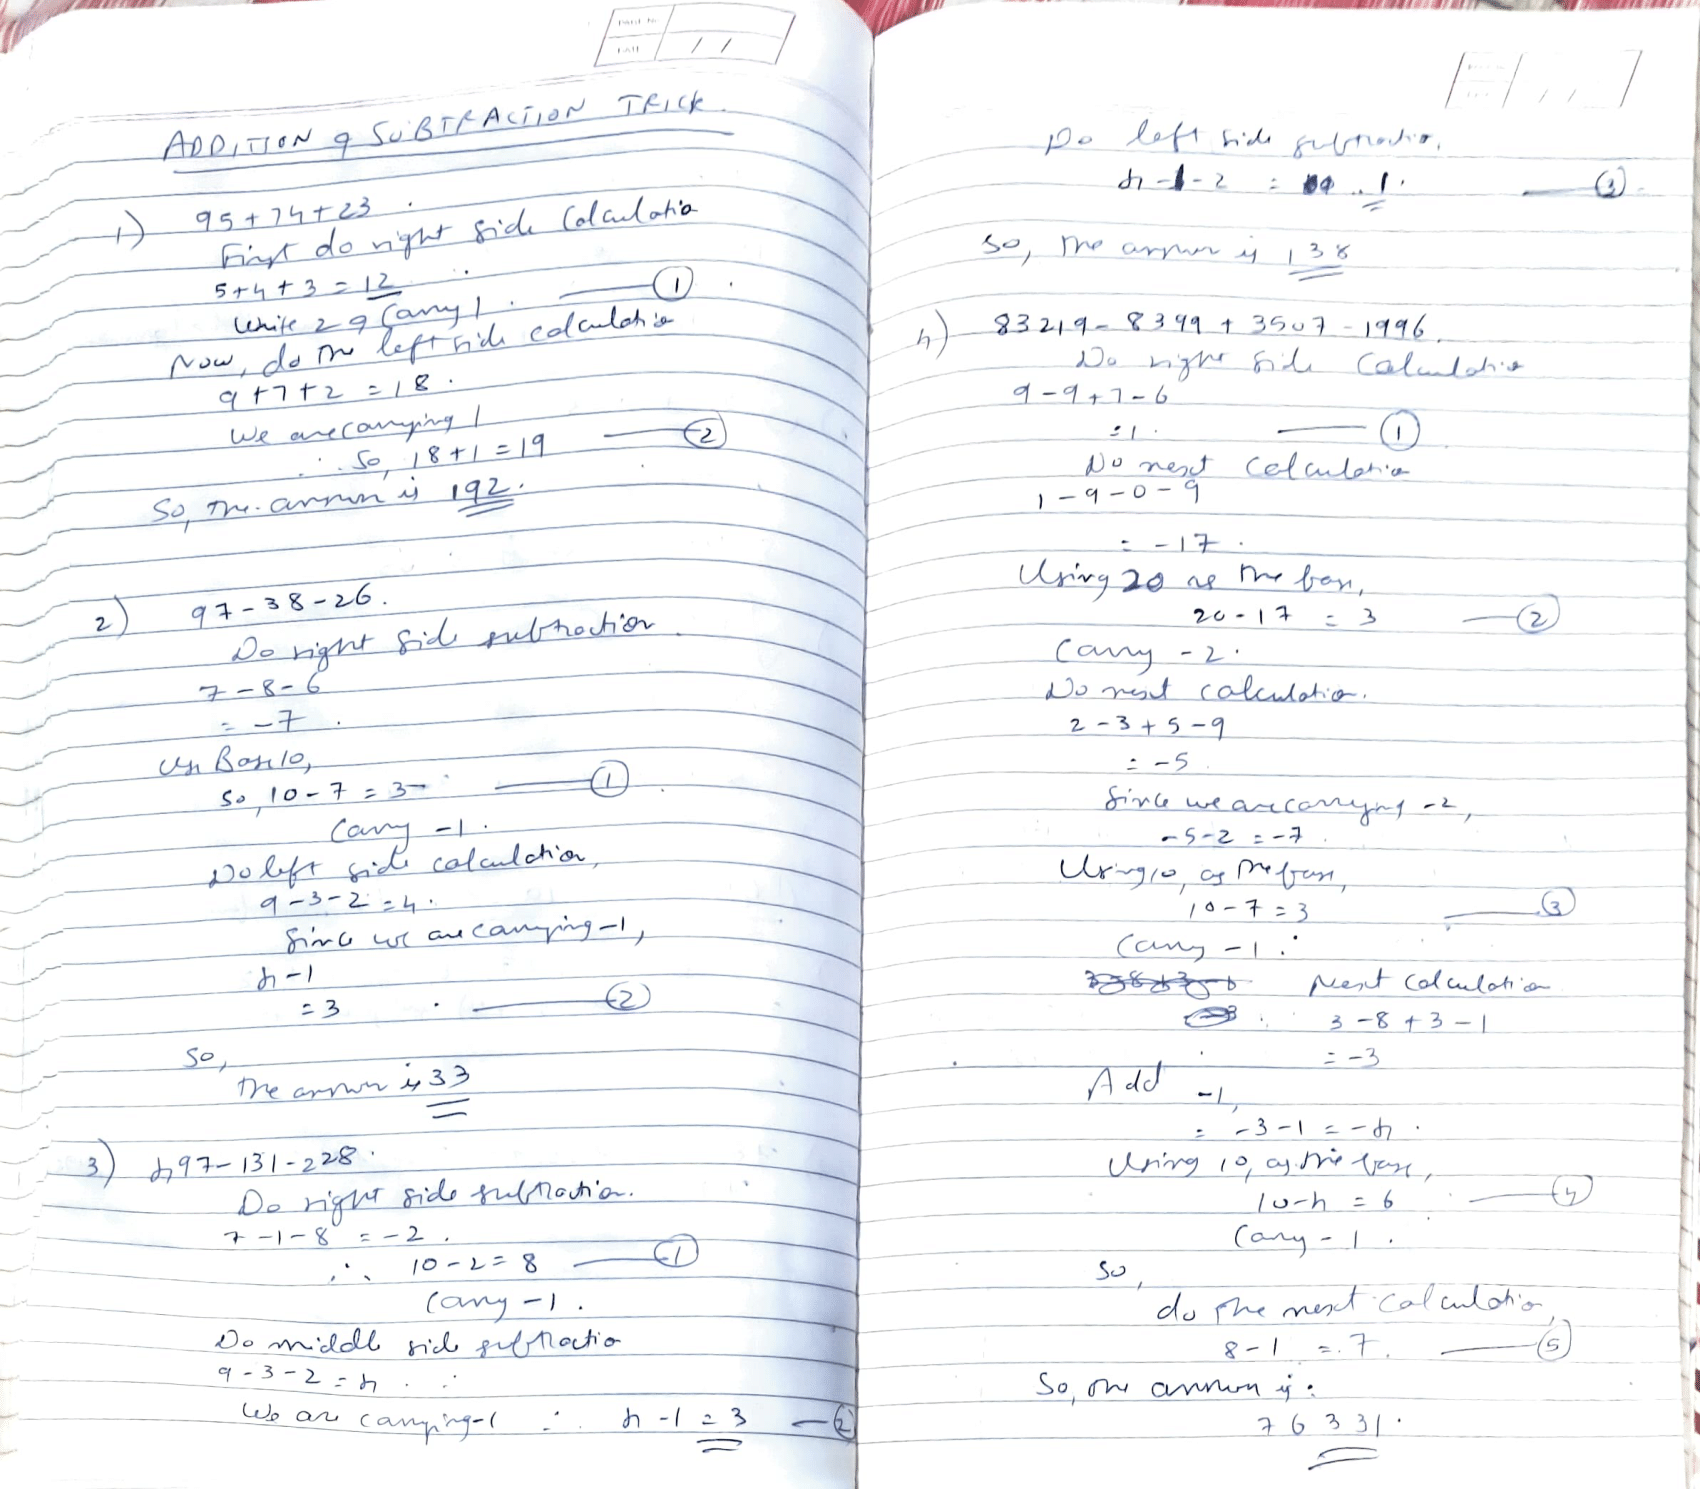 ADDITION & SUBTRACTION TRICK
1) 95+74+23
First do right side Calculatio
5+4+3=12
Write 2 & Carry 1. ①
Now, do the left side calculatio
9+7+2=18.
We are carrying 1
∴ So, 18+1=19 ②
So, the answer is 192.
2) 97-38-26.
Do right side subtraction
7-8-6
= -7
Use Base 10,
So, 10-7=3 ①
Carry -1.
Do left side calculation,
9-3-2=4.
Since we are carrying -1,
4-1
=3 ②
So,
the answer is 33
3) 497-131-228.
Do right side subtraction.
7-1-8 = -2.
∴ 10-2=8 ①
Carry -1.
Do middle side subtractio
9-3-2=4
We are carrying -1 ∴ 4-1=3 ②
Do left side subtractio,
4-1-2 = 1. ③
So, the answer is 138
4) 83219-8399+3507-1996
Do right side Calculatio
9-9+7-6
=1. ①
Do next Calculatio
1-9-0-9
= -17.
Using 20 as the base,
20-17 = 3 ②
Carry -2.
Do next calculation.
2-3+5-9
= -5
Since we are carrying -2,
-5-2 = -7
Using 10, as the base,
10-7=3 ③
Carry -1.
Next Calculation
3-8+3-1
= -3
Add -1,
= -3-1 = -4.
Using 10, as the base,
10-4 = 6 ④
Carry -1.
So,
do the next Calculatio,
8-1 = 7. ⑤
So, the answer is:
76331.